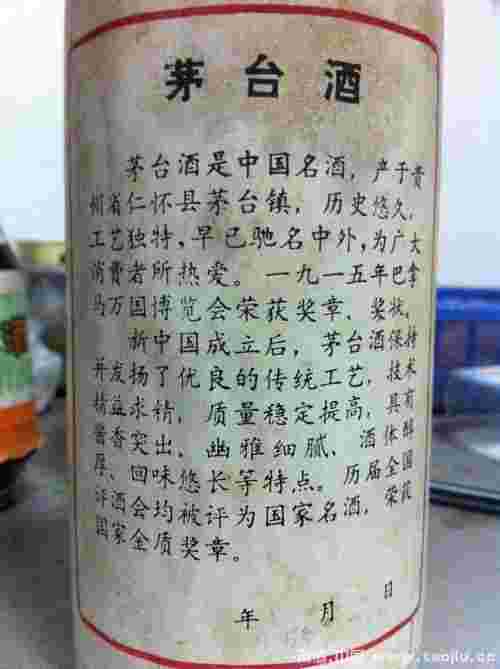 茅台酒
茅台酒是中国名酒,产于贵
州省仁怀县茅台镇,历史悠久,
工艺独特,早已驰名中外,为广大
消费者所热爱。一九一五年巴拿
马万国博览会荣获奖章、奖状,
新中国成立后,茅台酒保持
并发扬了优良的传统工艺,技术
精益求精,质量稳定提高,具有
酱香突出、幽雅细腻、酒体醇
厚、回味悠长等特点。历届全国
评酒会均被评为国家名酒,荣获
国家金质奖章。
年 月 日